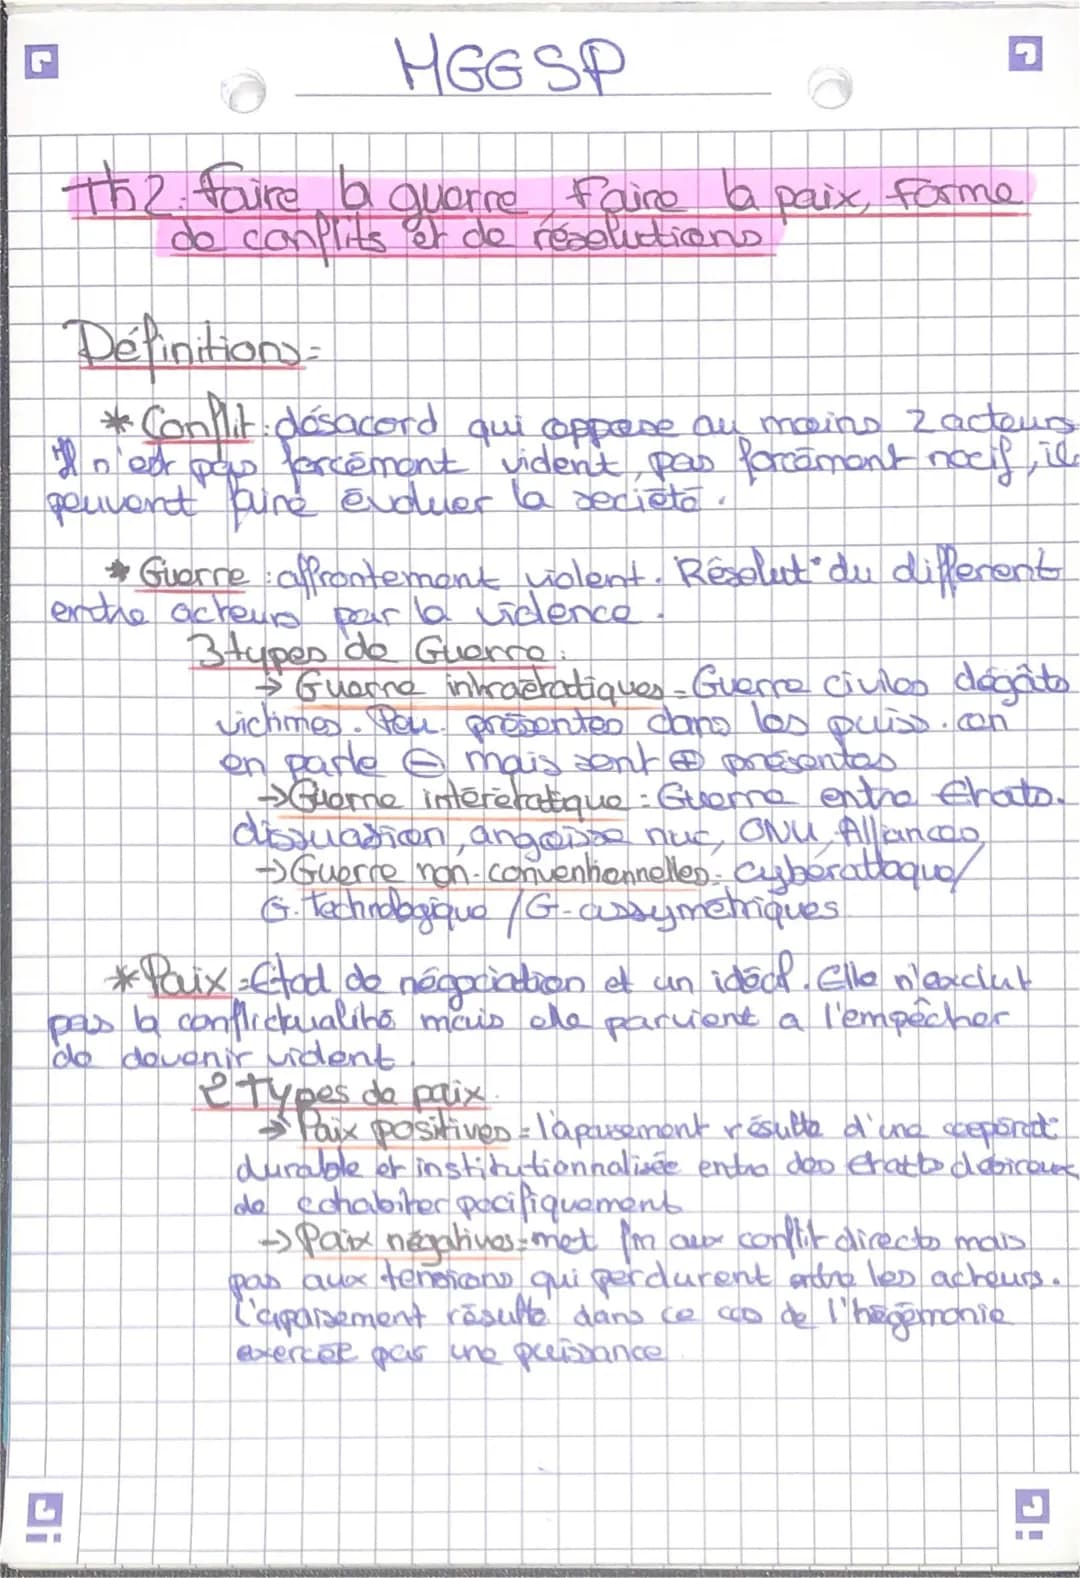 HGGSP
Th2: faire la guerre, Faire la paix, forme
de conflits et de résolutions
Définitions=
* Conflit: désacord qui oppose au moins 2 acteurs
Il n'est pas forcément violent, pas forcément nocif, ils
peuvent faire évoluer la société.
* Guerre: affrontement violent. Résolut° du différent
entre acteurs par la violence.
3 types de Guerre:
→ Guerre intraétatiques = Guerre civiles dégâts
victimes. Peu présentes dans les puiss. on
en parle ⊖ mais sont ⊕ présentes
→ Guerre interétatique: Guerre entre Etats.
dissuasion, angoisse nuc, ONU, Alliances,
→ Guerre non-conventionnelles= cyberattaque/
G. technologique / G-assymétriques
* Paix = Etat de négociation et un idéal. Elle n'exclut
pas la conflictualité mais elle parvient a l'empêcher
de devenir violent.
2 Types de paix.
→ Paix positives = l'apaisement résulte d'une coopérat°
durable et institutionnalisée entre des etatts désireux
de cohabiter pacifiquement
→ Paix négatives= met fin aux conflit directs mais
pas aux tensions qui perdurent entre les acteurs.
L'apaisement résulte dans ce cas de l'hégémonie
exercée par une puissance